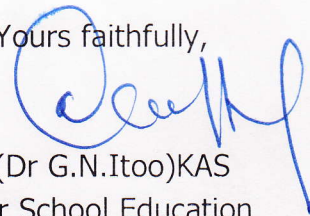 Yours faithfully,
(Dr G.N.Itoo)KAS
r School Education